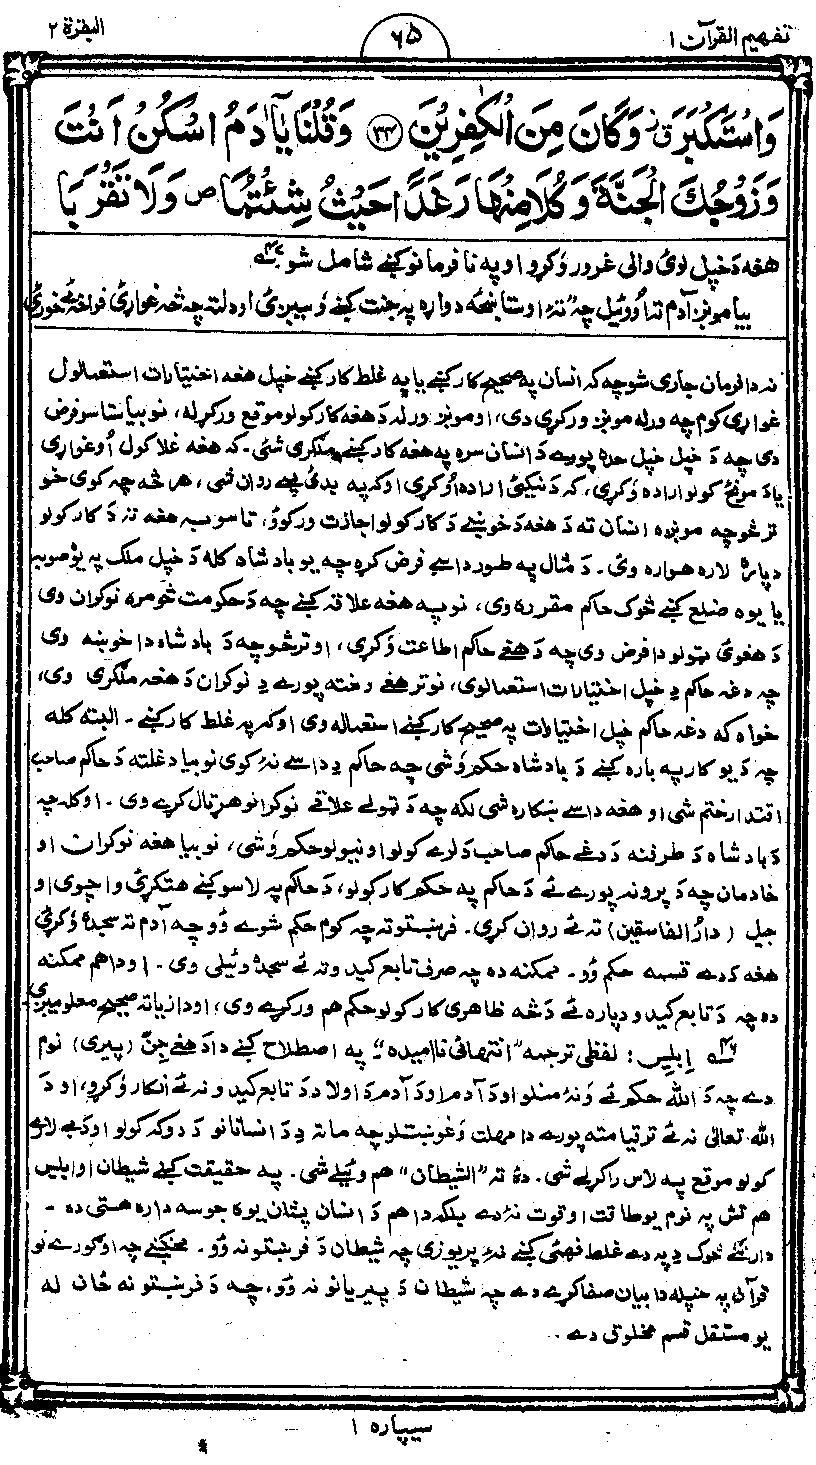 تفهيم القرآن ۱
۶۵
البقرة ۲
وَاسْتَكْبَرَ ق ز وَكَانَ مِنَ الْكٰفِرِيْنَ ۳۴ وَقُلْنَا يٰٓاٰدَمُ اسْكُنْ اَنْتَ
وَزَوْجُكَ الْجَنَّةَ وَكُلَا مِنْهَا رَغَدًا حَيْثُ شِئْتُمَا ص وَلَا تَقْرَبَا
هغه دَ خپل لوئ والی غرور وٗکړو او په نا فرمانو کښے شامل شو
بیا مونږ آدم ته اُووئیل چه ”تهٔ او ستا ښځه دواړه په جنت کښے وٗسیږئ او دلته چه څه غواړئ فراخهٔ ئے خورئ
نه دا فرمان جاری شو چه که انسان په صحیح کار کښے یا په غلط کار کښے خپل هغه اختیارات استعمالول
غواړی کوم چه ورله مونږ ورکړی دی، او مونږ ورله دَ هغه کار کولو موقع ورکړله، نو بیا ستاسو فرض
دی چه دَ خپل خپل حده پورے دَ انسان سره په هغه کار کښے ملګری شئ۔ که هغه غلا کول اُوغواړی
یا دَ مونځ کولو اراده وٗکړی، که دَ نیکئ اراده اُوکړی او که په بدئ پسے روان شی، هر څه چه کوی خو
تر څو چه مونږه انسان ته دَ هغه دَ خوښے دَ کار کولو اجازت ورکوٗو، تاسو به هغه ته دَ کار کولو
دپاره لاره هواره وئ۔ دَ مثال په طور داسے فرض کړه چه یو بادشاه کله دَ خپل ملک په یؤ صوبه
یا یوه ضلع کښے څوک حاکم مقرره وی، نو په هغه علاقه کښے چه دَ حکومت څومره نوکران وی
دَ هغوئ ټولو دا فرض وی چه دَ هغے حاکم اطاعت وٗکړی، او تر څو چه دَ بادشاه دا خوښه وی
چه دغه حاکم دِ خپل اختیارات استعمالوی، نو تر هغے وخته پورے دِ نوکران دَ هغه ملګری وی،
خواه که دغه حاکم خپل اختیارات په صحیح کار کښے استعماله وی او که په غلط کار کښے۔ البته کله
چه دَ یو کار په باره کښے دَ بادشاه حکم وٗشی چه حاکم دِ داسے نهٔ کوی نو بیا دغلته دَ حاکم صاحب
اقتدار ختم شی او هغه داسے ښکاره شی لکه چه دَ ټولے علاقے نوکرانو هړتال کړے وی۔ او کله چه
دَ بادشاه دَ طرفنه دَ دغے حاکم صاحب دَ لرے کولو او نیولو حکم وٗشی، نو بیا هغه نوکران او
خادمان چه دَ پرونه پورے ئے دَ حاکم په حکم کار کولو، دَ حاکم په لاسو کښے هتکړئ واچوی او
جیل (دارُ الفاسقین) ته ئے روان کړی۔ فرښتو ته چه کوم حکم شوے وٗو چه آدم ته سجده وٗکړئ
هغه کدے قسمه حکم وٗو۔ ممکنه ده چه صرف تابع کیدو ته ئے سجدهٔ وئیلی وی۔ او دا هم ممکنه
ده چه دَ تابع کیدو دپاره ئے دَ څه ظاهری کار کولو حکم هم ورکړے وی، او دا زیاته صحیح معلومیږی
اِبلیس: لفظی ترجمه ”انتهائی ناامیده“۔ په اصطلاح کښے دا دَ هغے جنّ (پیری) نوم
دے چه دَ الله حکم ئے وٗنهٔ منلو او دَ آدم او دَ آدم دَ اولاد دَ تابع کیدو نه ئے انکار وٗکړو، او دَ
الله تعالی نه ئے تر قیامته پورے دا مهلت وٗغوښتلو چه ما ته دِ دَ انسانانو دَ دوکه کولو او دَ بے لارے
کولو موقع په لاس راکړلے شی۔ دهٔ ته ”الشیطان“ هم وئیلے شی۔ په حقیقت کښے شیطان او ابلیس
هم تش په نوم یو طاقت او قوت نهٔ دے بلکه دا هم دَ انسان پشان یوه جوسه داره هستی ده ۔
دارنګے څوک دِ په دے غلط فهمئ کښے نهٔ پریوزی چه شیطان دَ فرښتو نه وٗو۔ مخکښے چه اوګورے نو
قرآن په خپله دا بیان صفا کړے دے چه شیطان دَ پیریانو نه وٗو، چه دَ فرښتو نه ځان له
یو مستقل قسم مخلوق دے۔
سیپاره ۱